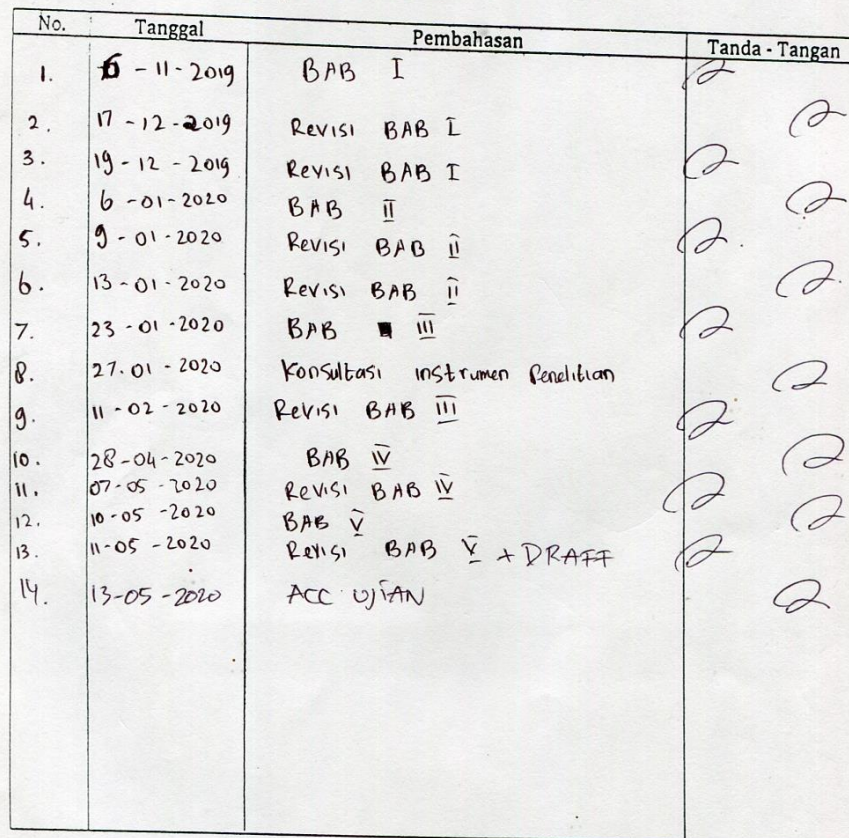 No. Tanggal Pembahasan Tanda - Tangan
1. 6 - 11 - 2019 BAB I
2. 17 - 12 - 2019 Revisi BAB I
3. 19 - 12 - 2019 Revisi BAB I
4. 6 - 01 - 2020 BAB II
5. 9 - 01 - 2020 Revisi BAB II
6. 13 - 01 - 2020 Revisi BAB II
7. 23 - 01 - 2020 BAB III
8. 27. 01 - 2020 Konsultasi instrumen Penelitian
9. 11 - 02 - 2020 Revisi BAB III
10. 28 - 04 - 2020 BAB IV
11. 07 - 05 - 2020 Revisi BAB IV
12. 10 - 05 - 2020 BAB V
13. 11 - 05 - 2020 Revisi BAB V + DRAFF
14. 13 - 05 - 2020 ACC UJIAN